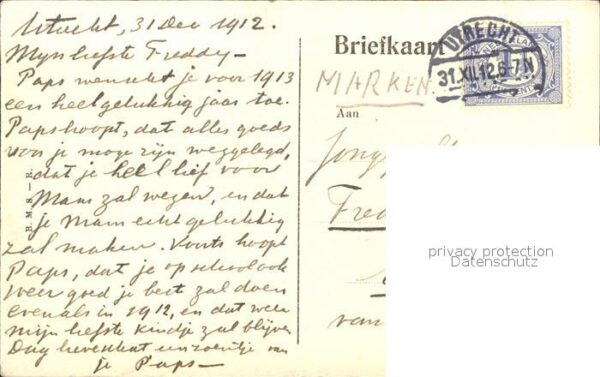 Utrecht, 31 Dec 1912.
Mijn liefste Freddy —
Paps wenscht je voor 1913
een heel gelukkig jaar toe.
Paps hoopt, dat alles goeds
voor je moge zijn weggelegd,
dat je heel lief voor
Mams zal wezen, en dat
je Mam echt gelukkig
zal maken. Voorts hoopt
Paps, dat je op school ook
weer goed je best zal doen
evenals in 1912, en dat weer
mijn liefste kindje zal blijven
Dag lieve schat een zoentje van
je Paps —
Briefkaart
MARKEN.
Aan
UTRECHT
31.XII.12.6-7N
Fred
van
privacy protection
Datenschutz